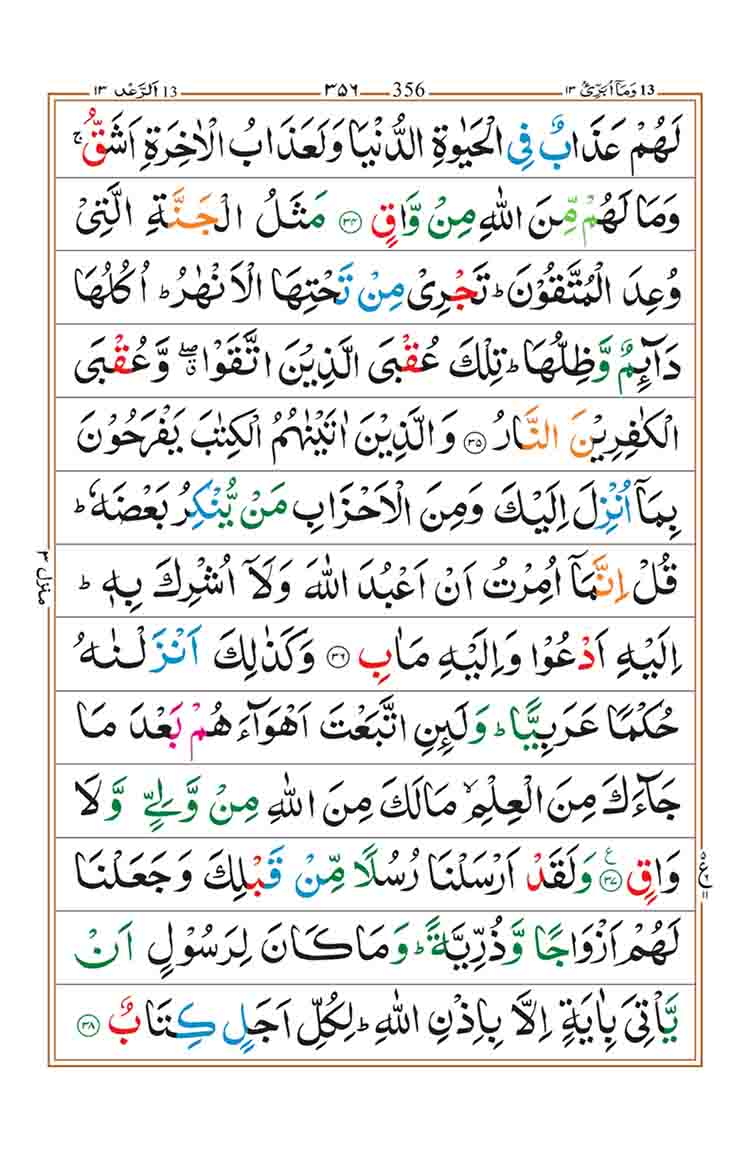 13 وَمَاۤ اُبَرِّئُ ١٣ 356 ٣٥٦ 13 اَلرَّعْد ١٣
لَهُمْ عَذَابٌ فِى الْحَيٰوةِ الدُّنْيَا وَلَعَذَابُ الْاٰخِرَةِ اَشَقُّ ۚ
وَمَا لَهُمْ مِّنَ اللّٰهِ مِنْ وَّاقٍ ﴿٣٤﴾ مَثَلُ الْجَنَّةِ الَّتِىْ
وُعِدَ الْمُتَّقُوْنَ ؕ تَجْرِىْ مِنْ تَحْتِهَا الْاَنْهٰرُ ؕ اُكُلُهَا
دَآئِمٌ وَّظِلُّهَا ؕ تِلْكَ عُقْبَى الَّذِيْنَ اتَّقَوْا ۖۗ وَّعُقْبَى
الْكٰفِرِيْنَ النَّارُ ﴿٣٥﴾ وَالَّذِيْنَ اٰتَيْنٰهُمُ الْكِتٰبَ يَفْرَحُوْنَ
بِمَاۤ اُنْزِلَ اِلَيْكَ وَمِنَ الْاَحْزَابِ مَنْ يُّنْكِرُ بَعْضَهٗ ؕ
قُلْ اِنَّمَاۤ اُمِرْتُ اَنْ اَعْبُدَ اللّٰهَ وَلَاۤ اُشْرِكَ بِهٖ ؕ
اِلَيْهِ اَدْعُوْا وَاِلَيْهِ مَاٰبِ ﴿٣٦﴾ وَكَذٰلِكَ اَنْزَلْنٰهُ
حُكْمًا عَرَبِيًّا ؕ وَلَئِنِ اتَّبَعْتَ اَهْوَآءَهُمْ بَعْدَ مَا
جَآءَكَ مِنَ الْعِلْمِ ۙ مَا لَكَ مِنَ اللّٰهِ مِنْ وَّلِىٍّ وَّلَا
وَاقٍ ﴿٣٧﴾ ع وَلَقَدْ اَرْسَلْنَا رُسُلًا مِّنْ قَبْلِكَ وَجَعَلْنَا
لَهُمْ اَزْوَاجًا وَّذُرِّيَّةً ؕ وَمَا كَانَ لِرَسُوْلٍ اَنْ
يَّاْتِىَ بِاٰيَةٍ اِلَّا بِاِذْنِ اللّٰهِ ؕ لِكُلِّ اَجَلٍ كِتَابٌ ﴿٣٨﴾
منزل ٣